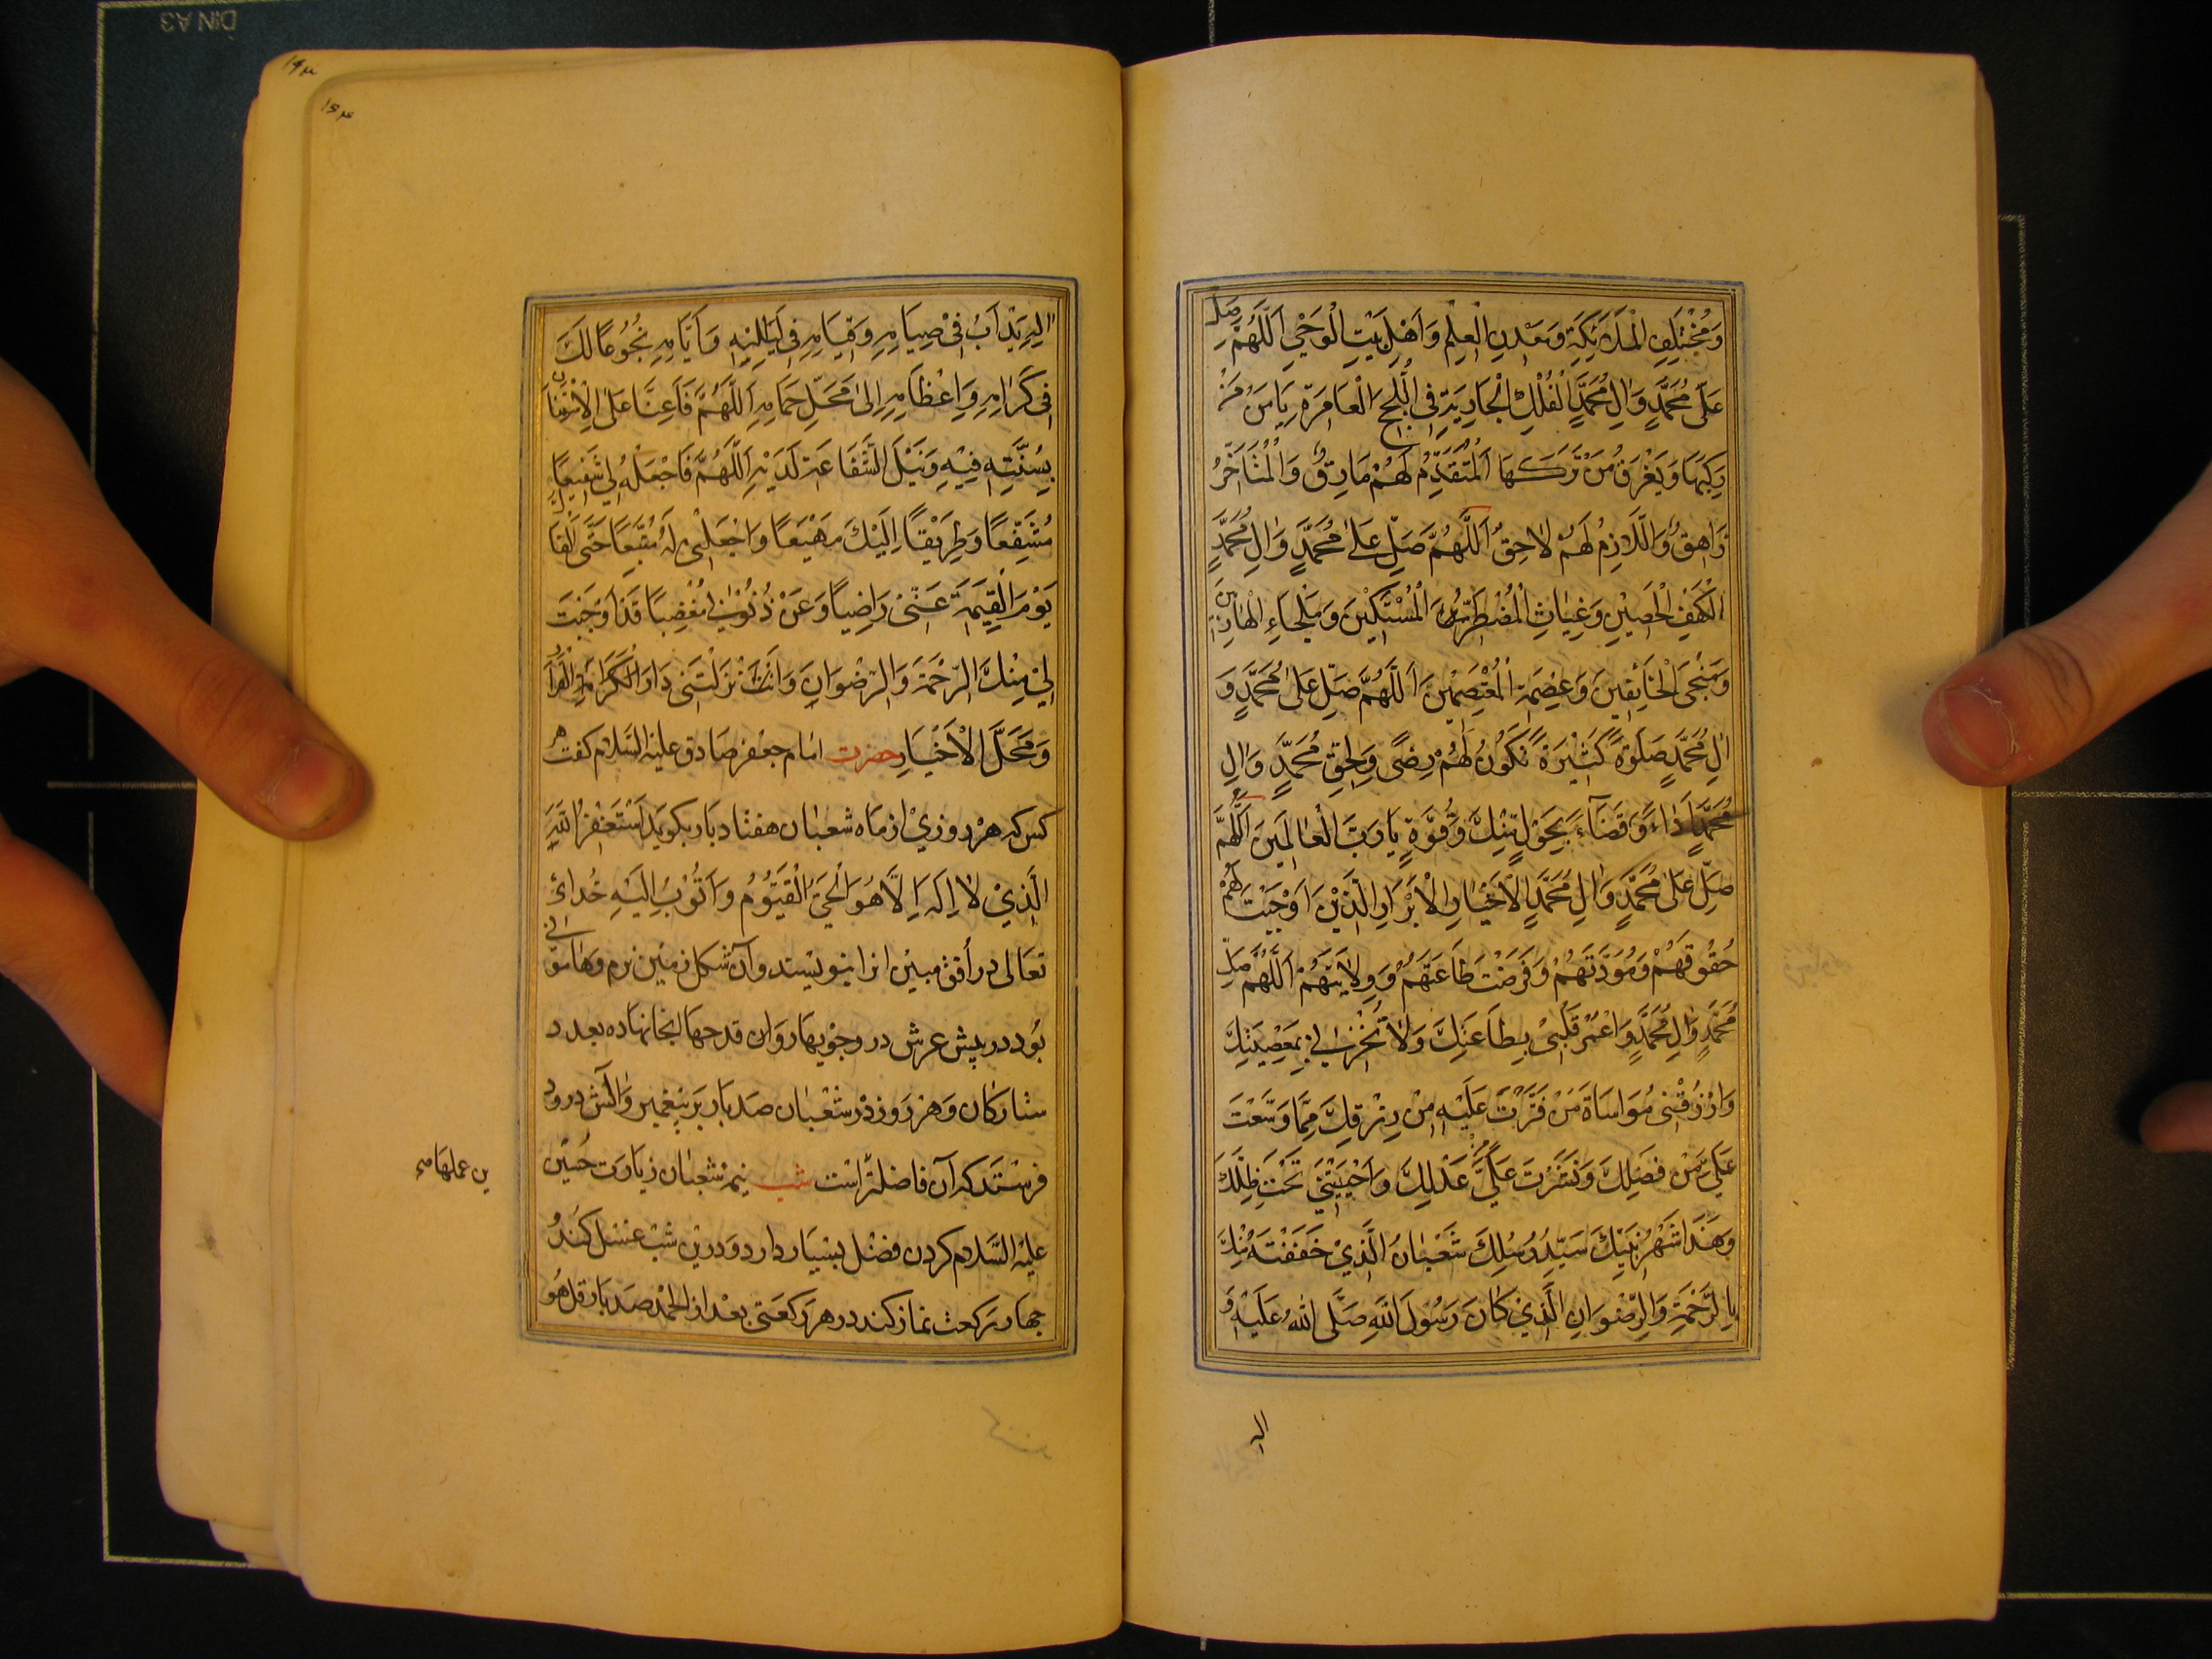 وَمُخْتَلَفِ الْمَلَائِكَةِ وَمَعْدِنِ الْعِلْمِ وَاَهْلِ بَيْتِ الْوَحْيِ اَللّٰهُمَّ صَلِّ
عَلٰى مُحَمَّدٍ وَاٰلِ مُحَمَّدٍ الْفُلْكِ الْجَارِيَةِ فِى اللُّجَجِ الْغَامِرَةِ يَاْمَنُ مَنْ
رَكِبَهَا وَيَغْرَقُ مَنْ تَرَكَهَا اَلْمُتَقَدِّمُ لَهُمْ مَارِقٌ وَالْمُتَاَخِّرُ
زَاهِقٌ وَاللَّازِمُ لَهُمْ لَاحِقٌ اَللّٰهُمَّ صَلِّ عَلٰى مُحَمَّدٍ وَاٰلِ مُحَمَّدٍ
الْكَهْفِ الْحَصِيْنِ وَغِيَاثِ الْمُضْطَرِّ الْمُسْتَكِيْنَ وَمَلْجَاءِ الْهَارِبِيْنَ
وَمَنْجَى الْخَائِفِيْنَ وَعِصْمَةِ الْمُعْتَصِمِيْنَ اَللّٰهُمَّ صَلِّ عَلٰى مُحَمَّدٍ وَ
اٰلِ مُحَمَّدٍ صَلٰوةً كَثِيْرَةً تَكُوْنُ لَهُمْ رِضًى وَلِحَقِّ مُحَمَّدٍ وَاٰلِ
مُحَمَّدٍ اَدَاءً وَقَضَآءً بِحَوْلٍ مِنْكَ وَقُوَّةٍ يَا رَبَّ الْعَالَمِيْنَ اَللّٰهُمَّ
صَلِّ عَلٰى مُحَمَّدٍ وَاٰلِ مُحَمَّدٍ الْاَخْيَارِ الْاَبْرَارِ الَّذِيْنَ اَوْجَبْتَ لَهُمْ
حُقُوْقَهُمْ وَمَوَدَّتَهُمْ وَفَرَضْتَ طَاعَتَهُمْ وَوِلَايَتَهُمْ اَللّٰهُمَّ صَلِّ
مُحَمَّدٍ وَاٰلِ مُحَمَّدٍ وَاعْمُرْ قَلْبِىْ بِطَاعَتِكَ وَلَا تُخْزِنِىْ بِمَعْصِيَتِكَ
وَارْزُقْنِىْ مُوَاسَاةَ مَنْ قَتَّرْتَ عَلَيْهِ مِنْ رِزْقِكَ مِمَّا وَسَّعْتَ
عَلَىَّ مِنْ فَضْلِكَ وَنَشَرْتَ عَلَىَّ مِنْ عَدْلِكَ وَاَحْيَيْتَنِىْ تَحْتَ ظِلِّكَ
وَهٰذَا شَهْرُ نَبِيِّكَ سَيِّدِ رُسُلِكَ شَعْبَانُ الَّذِيْ حَفَفْتَهُ مِنْكَ
بِالرَّحْمَةِ وَالرِّضْوَانِ الَّذِيْ كَانَ رَسُوْلَ اللّٰهِ صَلَّى اللهُ عَلَيْهِ وَ
اله
اٰلِهِ يَدْاَبُ فِىْ صِيَامِهِ وَقِيَامِهِ فِى لَيَالِيْهِ وَاَيَّامِهِ بُخُوْعًا لَكَ
فِى اِكْرَامِهِ وَاِعْظَامِهِ اِلٰى مَحَلِّ حِمَامِهِ اَللّٰهُمَّ فَاَعِنَّا عَلَى الْاِسْتِنَانِ
بِسُنَّتِهِ فِيْهِ وَنَيْلِ الشَّفَاعَةِ لَدَيْهِ اَللّٰهُمَّ فَاجْعَلْهُ لِي شَفِيْعًا
مُشَفَّعًا وَطَرِيْقًا اِلَيْكَ مَهْيَعًا وَاجْعَلْنِىْ لَهُ مُتَّبِعًا حَتّٰى اَلْقَاهُ
يَوْمَ الْقِيٰمَةِ عَنِّىْ رَاضِيًا وَعَنْ ذُنُوْبِىْ مُغْضِيًا قَدْ اَوْجَبْتَ
لِيْ مِنْكَ الرَّحْمَةَ وَالرِّضْوَانَ وَاَنْزَلْتَنِىْ دَارَ الْكَرَامَةِ الْقَرَارِ
وَمَحَلَّ الْاَخْيَارِ حضرت امام جعفر صادق عليه السلام كفت هر
كس كه هر روزي از ماه شعبان هفتاد بار بكويد اَسْتَغْفِرُ اللّٰهَ
الَّذِيْ لَا اِلٰهَ اِلَّا هُوَ الْحَيُّ الْقَيُّوْمُ وَاَتُوْبُ اِلَيْهِ خداى
تعالى در أفق مبين انرا بنويسند وآن شكل زمين نرم وهامونى
بود در پيش عرش در وجويها روان قدحها انجا نهاده بعدد
ستاركان وهر روز در شعبان صد بار بر پيغمبر وآلش درود
فرستد كه آن فاضلتر است شب نيمه شعبان زيارت حسين
عليه السلام كردن فضل بسيار دارد ودرين شب غسل كند
چهار ركعت نماز كند در هر ركعتى بعد از الحمد صد بار قل هو